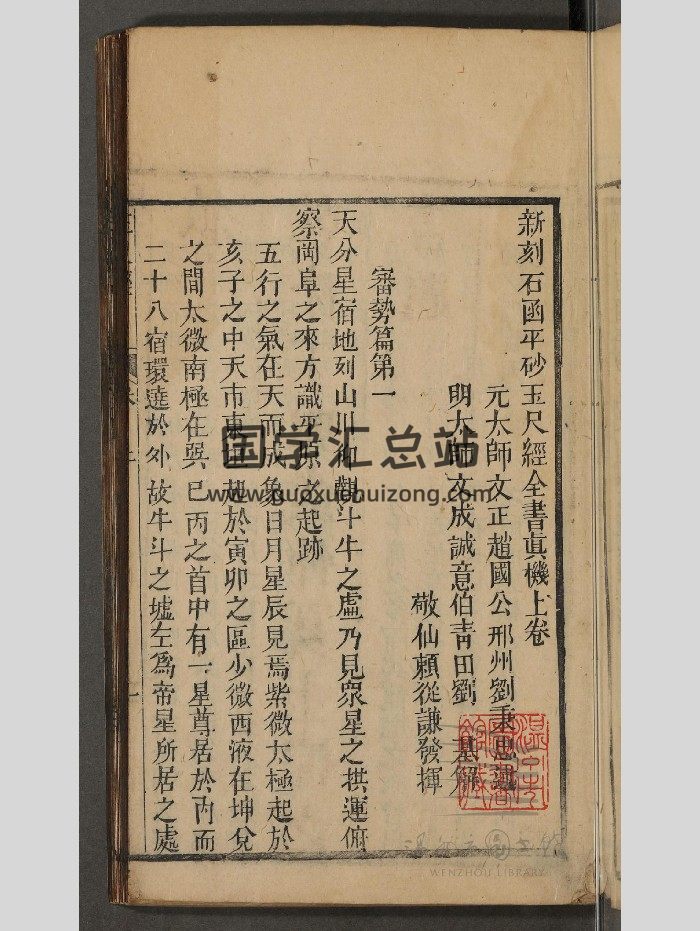 新刻石函平砂玉尺經全書眞機上卷
元太師文正趙國公邢州劉秉忠述
明太師文成誠意伯青田劉 基解
敬仙賴從謙發揮
審勢篇第一
天分星宿地列山川仰觀斗牛之虛乃見衆星之拱運俯
察岡阜之來方識平原之起跡
五行之氣在天而成象日月星辰見焉紫微太極起於
亥子之中天市東垣起於寅卯之區少微西液在坤兌
之間太微南極在巽巳丙之首中有一星尊居於內而
二十八宿環遶於外故牛斗之墟左爲帝星所居之處
国学汇总站
www.guoxuehuizong.com
WENZHOU LIBRARY